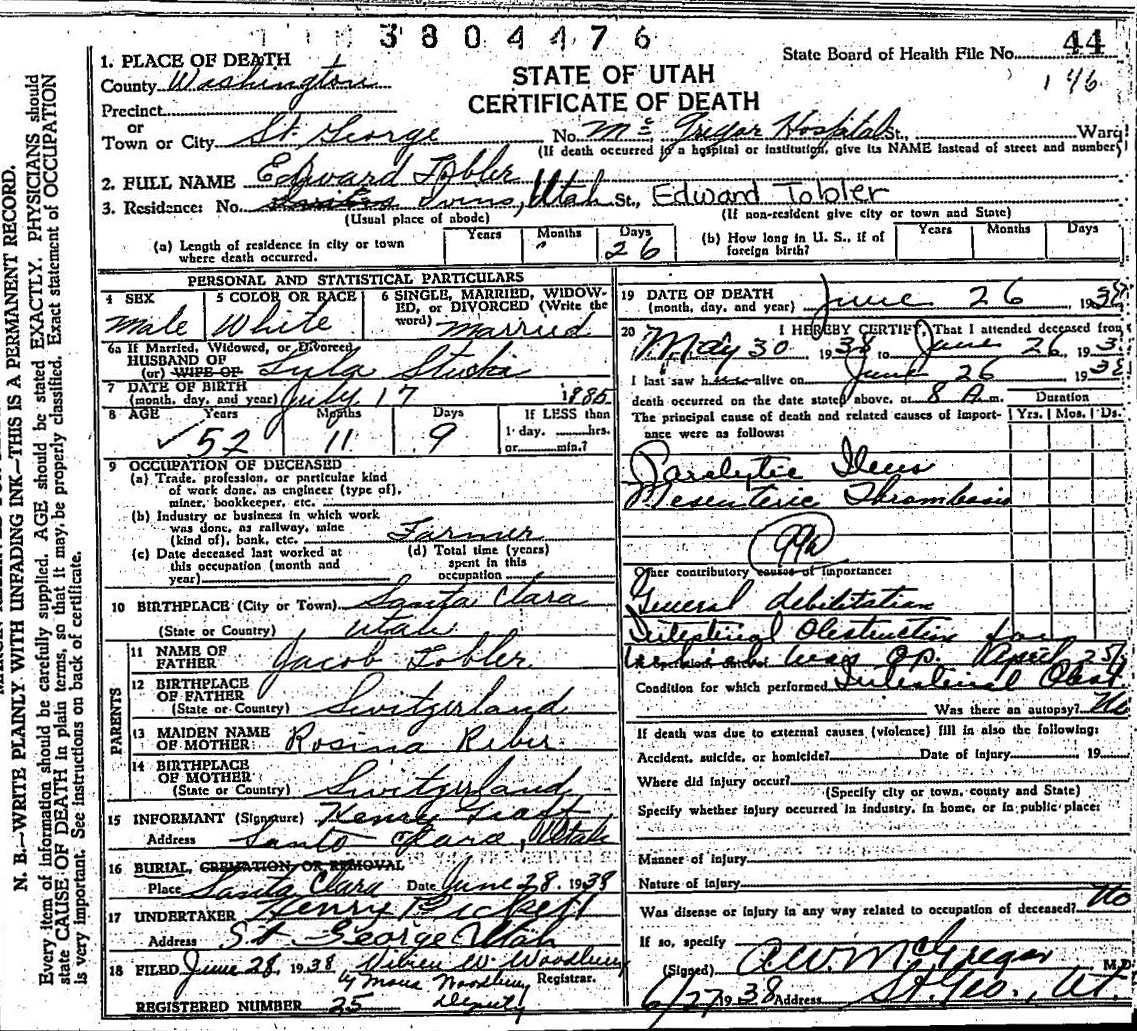 3804476
State Board of Health File No. 44
146
STATE OF UTAH
CERTIFICATE OF DEATH
1. PLACE OF DEATH
County Washington
Precinct
or
Town or City St. George No. Mc Gregor Hospital St., Ward
(If death occurred in a hospital or institution, give its NAME instead of street and number)
2. FULL NAME Edward Tobler
3. Residence: No. Ivins, Utah St., Edward Tobler
(Usual place of abode) (If non-resident give city or town and State)
(a) Length of residence in city or town where death occurred. Years Months Days 26
(b) How long in U. S., if of foreign birth? Years Months Days
PERSONAL AND STATISTICAL PARTICULARS
4 SEX Male
5 COLOR OR RACE White
6 SINGLE, MARRIED, WIDOWED, or DIVORCED (Write the word) Married
6a If Married, Widowed, or Divorced
HUSBAND OF
(or) WIFE OF Lula
7 DATE OF BIRTH
(month, day, and year) July 17 1885
8 AGE Years Months Days If LESS than
52 11 9 1 day, hrs. or min.?
9 OCCUPATION OF DECEASED
(a) Trade, profession, or particular kind
of work done, as engineer (type of),
miner, bookkeeper, etc.
(b) Industry or business in which work
was done, as railway, mine
(kind of), bank, etc. Farmer
(c) Date deceased last worked at
this occupation (month and
year)
(d) Total time (years)
spent in this
occupation
10 BIRTHPLACE (City or Town) Santa Clara
(State or Country) Utah
PARENTS
11 NAME OF
FATHER Jacob Tobler
12 BIRTHPLACE
OF FATHER
(State or Country) Switzerland
13 MAIDEN NAME
OF MOTHER Rosina Reber
14 BIRTHPLACE
OF MOTHER
(State or Country) Switzerland
15 INFORMANT (Signature) Henry Graff
Address Santa Clara, Utah
16 BURIAL, CREMATION OR REMOVAL
Place Santa Clara Date June 28, 1938
17 UNDERTAKER Henry Pickett
Address St. George Utah
18 FILED June 28, 1938 W. Woodbury
Registrar.
by Woodbury
Deputy
REGISTERED NUMBER 25
19 DATE OF DEATH
(month, day, and year) June 26 1938
20 I HEREBY CERTIFY, That I attended deceased from
May 30 1938 to June 26, 193
I last saw h alive on June 26 1938
death occurred on the date stated above, at 8 A m.
Duration
The principal cause of death and related causes of importance were as follows: Yrs. Mos. Ds.
Paralytic Ileus
Mesenteric Thrombosis
99a
Other contributory causes of importance:
General debilitation
Intestinal Obstruction for
which was op. April 25
Condition for which performed Intestinal Obst
Was there an autopsy? No
If death was due to external causes (violence) fill in also the following:
Accident, suicide, or homicide? Date of injury 19
Where did injury occur?
(Specify city or town, county and State)
Specify whether injury occurred in industry, in home, or in public place:
Manner of injury
Nature of injury
Was disease or injury in any way related to occupation of deceased? No
If so, specify
(Signed) A.W. McGregor M.D.
6/27 1938 Address St. Geo., Ut.
N. B.—WRITE PLAINLY WITH UNFADING INK—THIS IS A PERMANENT RECORD.
Every item of information should be carefully supplied. AGE should be stated EXACTLY. PHYSICIANS should
state CAUSE OF DEATH in plain terms, so that it may be properly classified. Exact statement of OCCUPATION
is very important. See instructions on back of certificate.